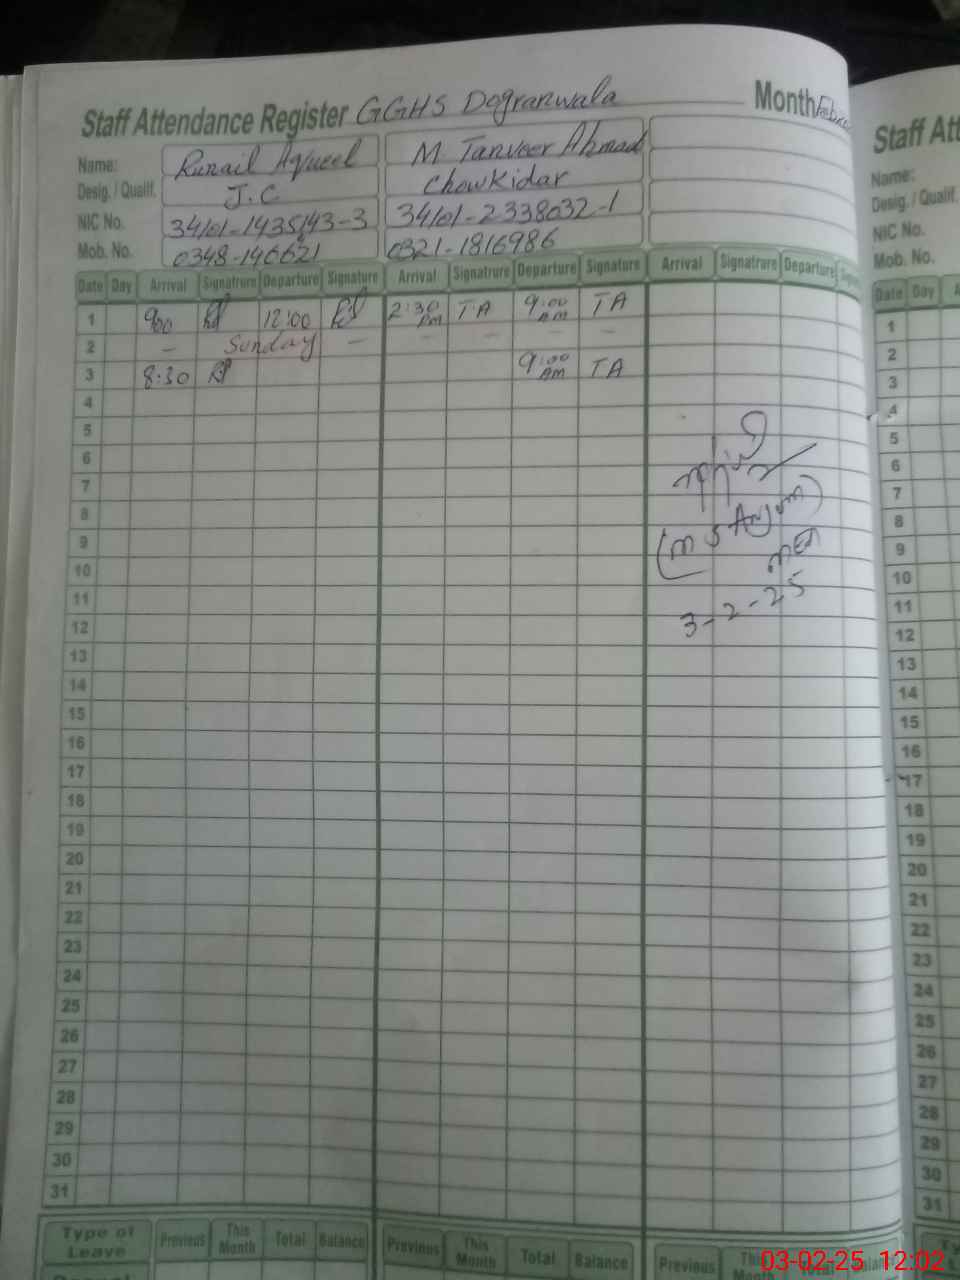 Staff Attendance Register GGHS Dogranwala Month
Name: Runail Aqueel M. Tanveer Ahmad
Desig. / Qualif. J.C Chowkidar
NIC No. 34101-1435143-3 34101-2338032-1
Mob. No. 0348-146621 0321-1816986
Date Day Arrival Signatrure Departure Signature Arrival Signatrure Departure Signature Arrival Signatrure Departure
1 900 12:00 2:30 Pm TA 9:00 Am TA
2 – Sunday – – – – –
3 8:30 9:00 Am TA
4
5
6
7
8
9
10
11
12
13
14
15
16
17
18
19
20
21
22
23
24
25
26
27
28
29
30
31
(M S Anjum)
MEA
3-2-25
Type of Leave Previous This Month Total Balance Previous This Month Total Balance Previous This
Staff Att
Name:
Desig. / Qualif.
NIC No.
Mob. No.
Date Day
1
2
3
4
5
6
7
8
9
10
11
12
13
14
15
16
17
18
19
20
21
22
23
24
25
26
27
28
29
30
31
03-02-25 12:02